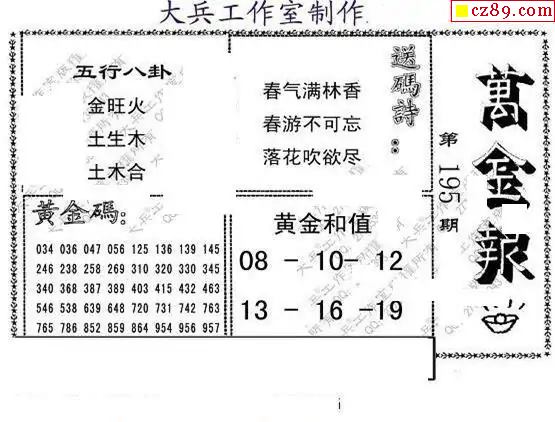 大兵工作室制作
cz89.com
五行八卦
金旺火
土生木
土木合
送碼詩：
春气满林香
春游不可忘
落花吹欲尽
萬金報
第195期
黃金碼：
034 036 047 056 125 136 139 145
246 238 258 269 310 320 330 345
340 368 387 389 403 415 432 463
546 538 639 648 720 731 742 763
765 786 852 859 864 954 956 957
黄金和值
08 - 10- 12
13 - 16 -19
i